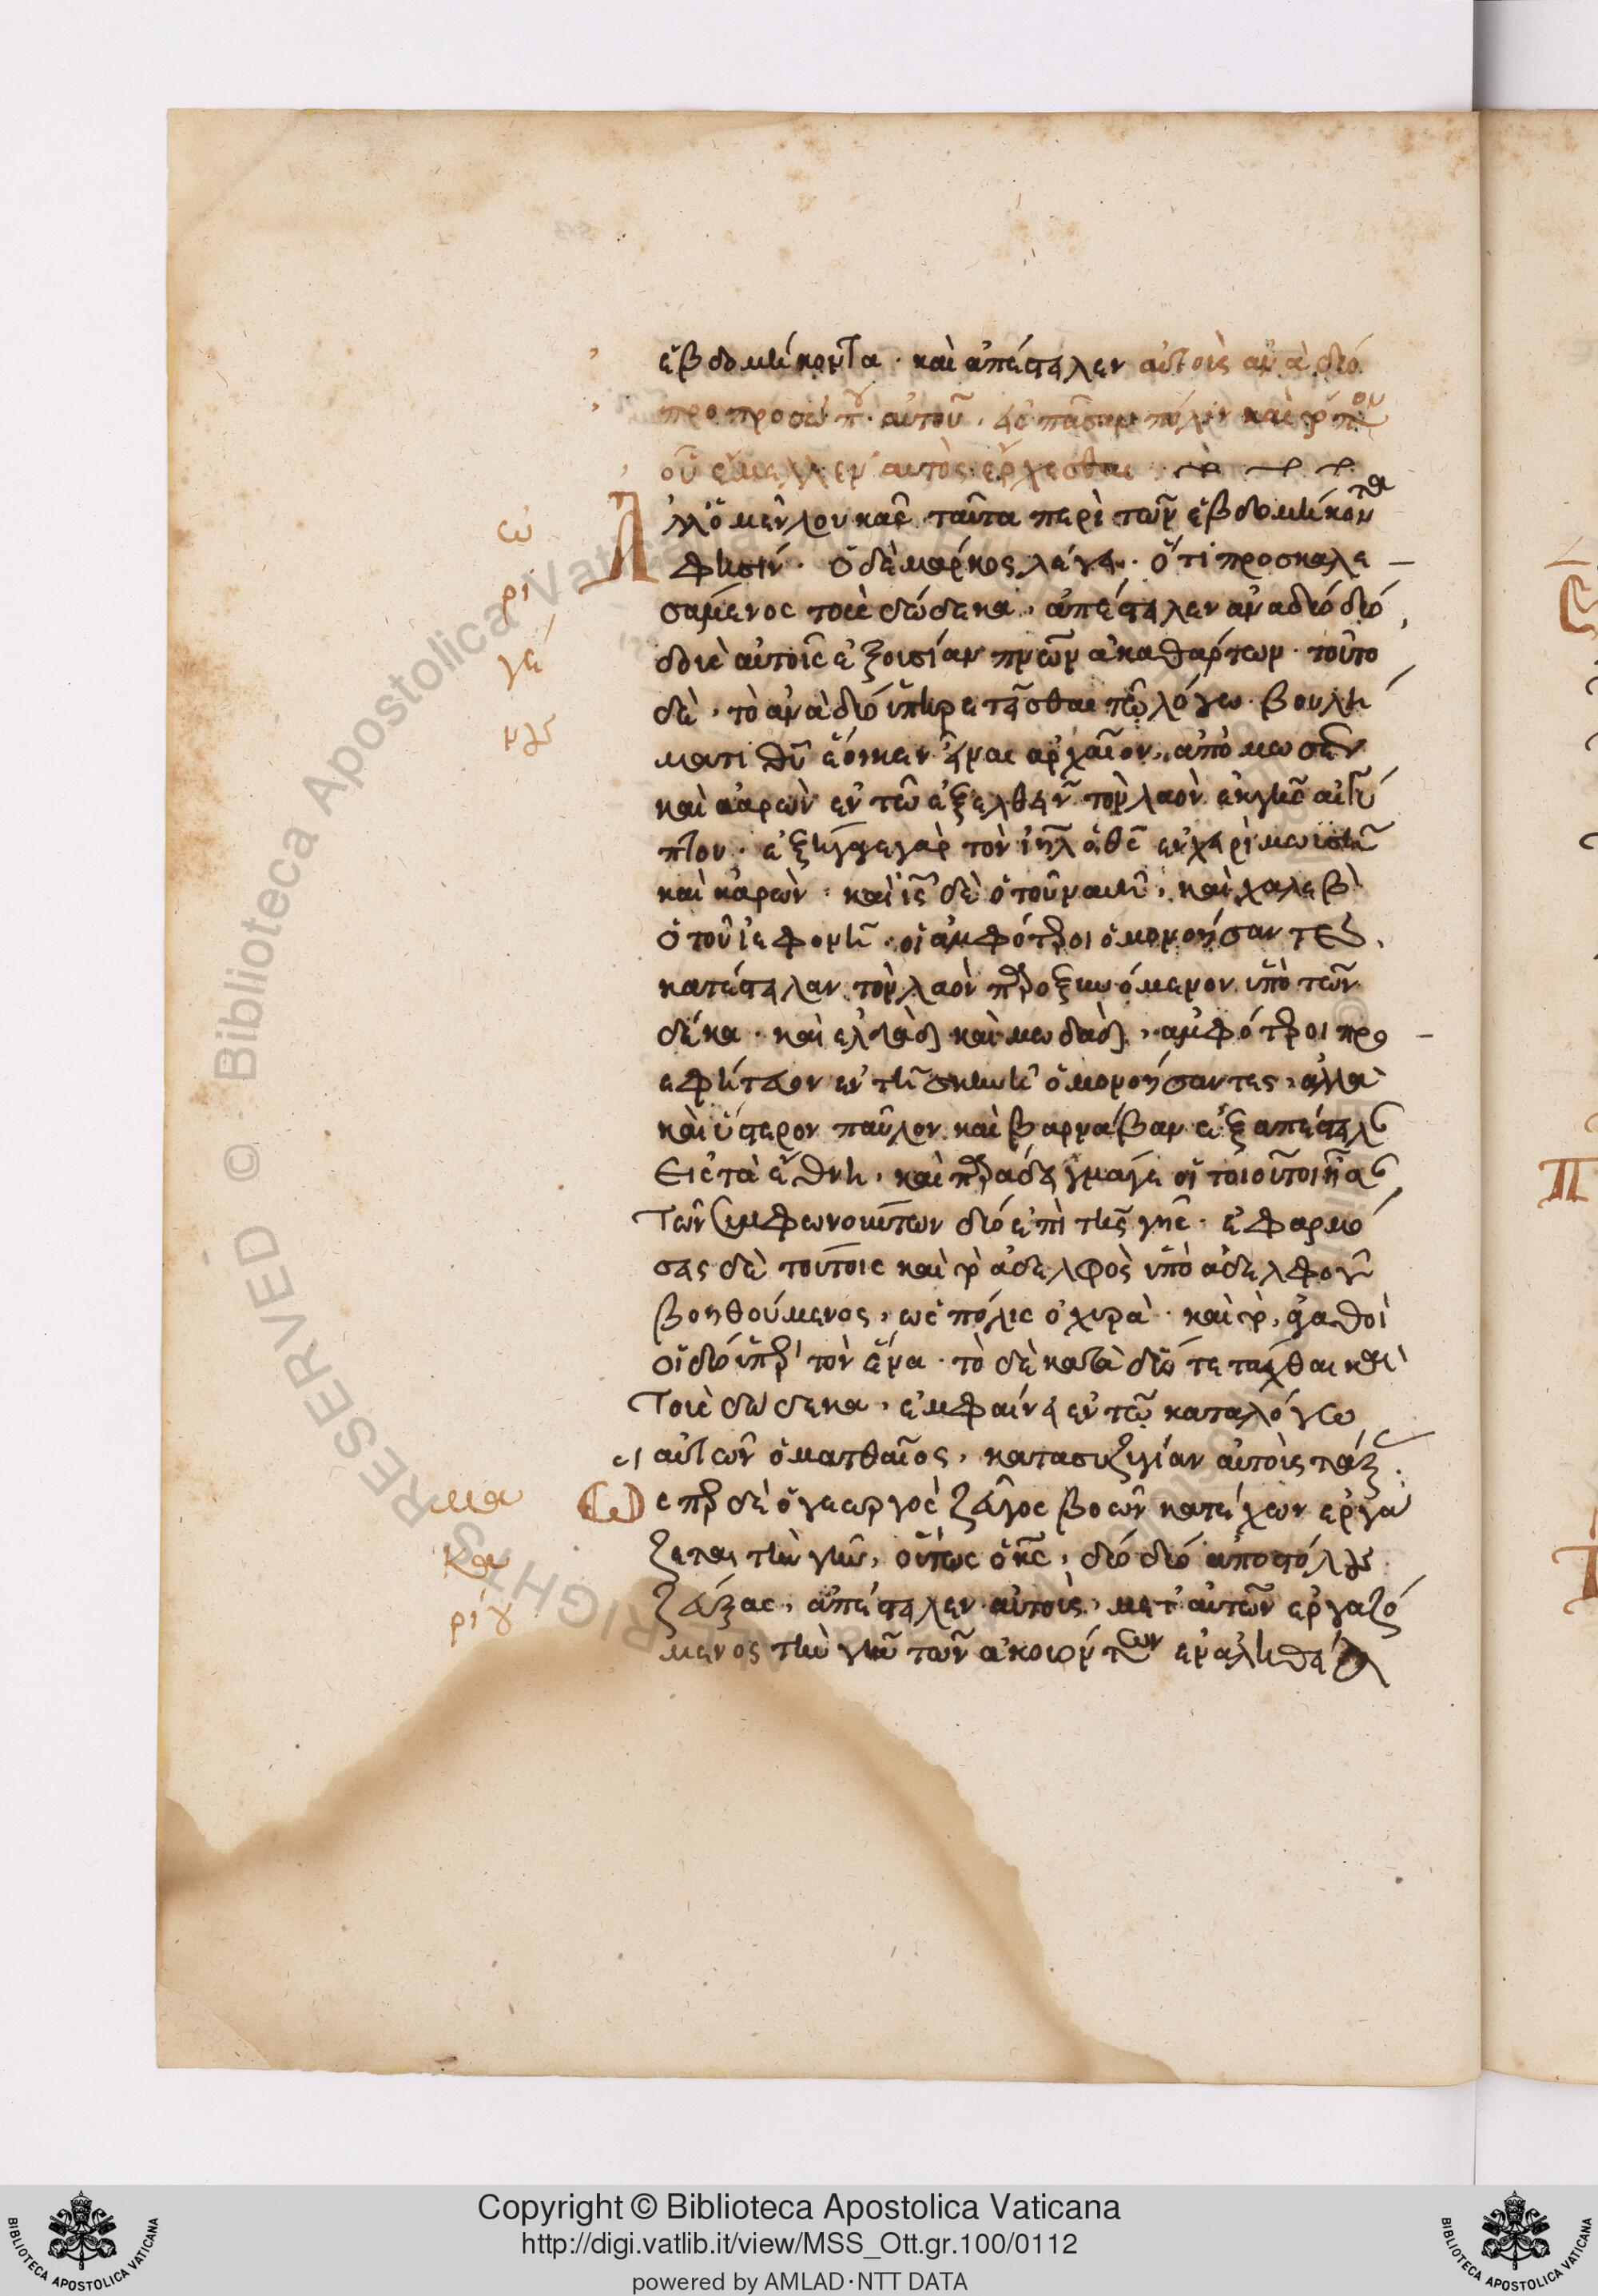 ἑβδομήκοντα· καὶ ἀπέστειλεν αὐτοὺς ἀνὰ δύο
προ προσώπου αὐτοῦ, εἰς πᾶσαν πόλιν καὶ τόπον
οὗ ἔμελλεν αὐτὸς ἔρχεσθαι
Ἀλλ' ὁ μὲν λουκᾶς ταῦτα περὶ τῶν ἑβδομήκοντα
ὠ
φησίν· ὁ δὲ μάρκος λέγει· ὅτι προσκαλε
ρι
σαμενος τοὺς δώδεκα, ἀπέστειλεν ἀνα δύο δύο
γέ
διδοὺς αὐτοῖς ἐξουσίαν πνων ἀκαθάρτων· τοῦτο
δὲ, τὸ ἀνὰ δύο ὑπηρετεῖσθαι τῷ λόγω βουλή
νους
ματι θυ ἔοικεν εἶναι ἀρχαῖον, ἀπὸ μωσῆν
καὶ ἀαρὼν ἐν τῶ ἐξελθεῖν τὸν λαὸν ἐκ γῆς αἰγύ
πτου· ἐξήγαγε γὰρ τὸν ιηλ ὁ θς ἐν χειρὶ μωυσῆ
καὶ ἀαρὼν· καὶ ις δὲ ὁ τοῦ ναυῆ, καὶ χαλεβ
ὁ τοῦ ἰεφονῆ· οἱ ἀμφότεροι ὁμονοήσαντες,
κατέστειλαν τὸν λαὸν παροξυνόμενον ὑπὸ τῶν
δέκα· καὶ ελδὰδ καὶ μωδὰδ, ἀμφότεροι προ
εφήτευον ἐν τῆ σκηνῆ ὁμονοήσαντες, ἀλλὰ
καὶ ὕστερον παῦλον καὶ βαρνάβαν ἐξαπέστειλεν
εἰς τὰ ἔθνη, καὶ παράδειγμά γε οἱ τοιοῦτοι ἦσαν
τῶν συμφωνούντων δύο ἐπὶ τῆς γῆς· ἐφαρμό
σεις δὲ τούτοις καὶ τὸ ἀδελφὸς ὑπὸ ἀδελφοῦ
βοηθούμενος, ὡς πόλις ὀχυρὰ· καὶ τὸ, ἀγαθοὶ
οἱ δύο ὑπὲρ τὸν ἕνα· τὸ δὲ κατὰ δύο τετάχθαι καὶ
τοὺς δώδεκα, ἐμφαίνει ἐν τῷ καταλόγω
αὐτῶν ὁ ματθαῖος, κατα συζυγίαν αὐτοὺς τάξ
μα
Ὥσπερ δὲ ὁ γεωργὸς ζεῦγος βοῶν κατέχων ἐργά
κα
ζεται τὴν γῆν, οὕτως ὁ κς, δύο δύο ἀποστόλους
ρίου
ζεύξας, ἀπέστειλεν αὐτοὺς, μετ' αὐτῶν ἐργαζό
μενος τὴν γῆν τῶν ἀκουόντων ἐν ἀληθεία
Copyright © Biblioteca Apostolica Vaticana
http://digi.vatlib.it/view/MSS_Ott.gr.100/0112
powered by AMLAD·NTT DATA